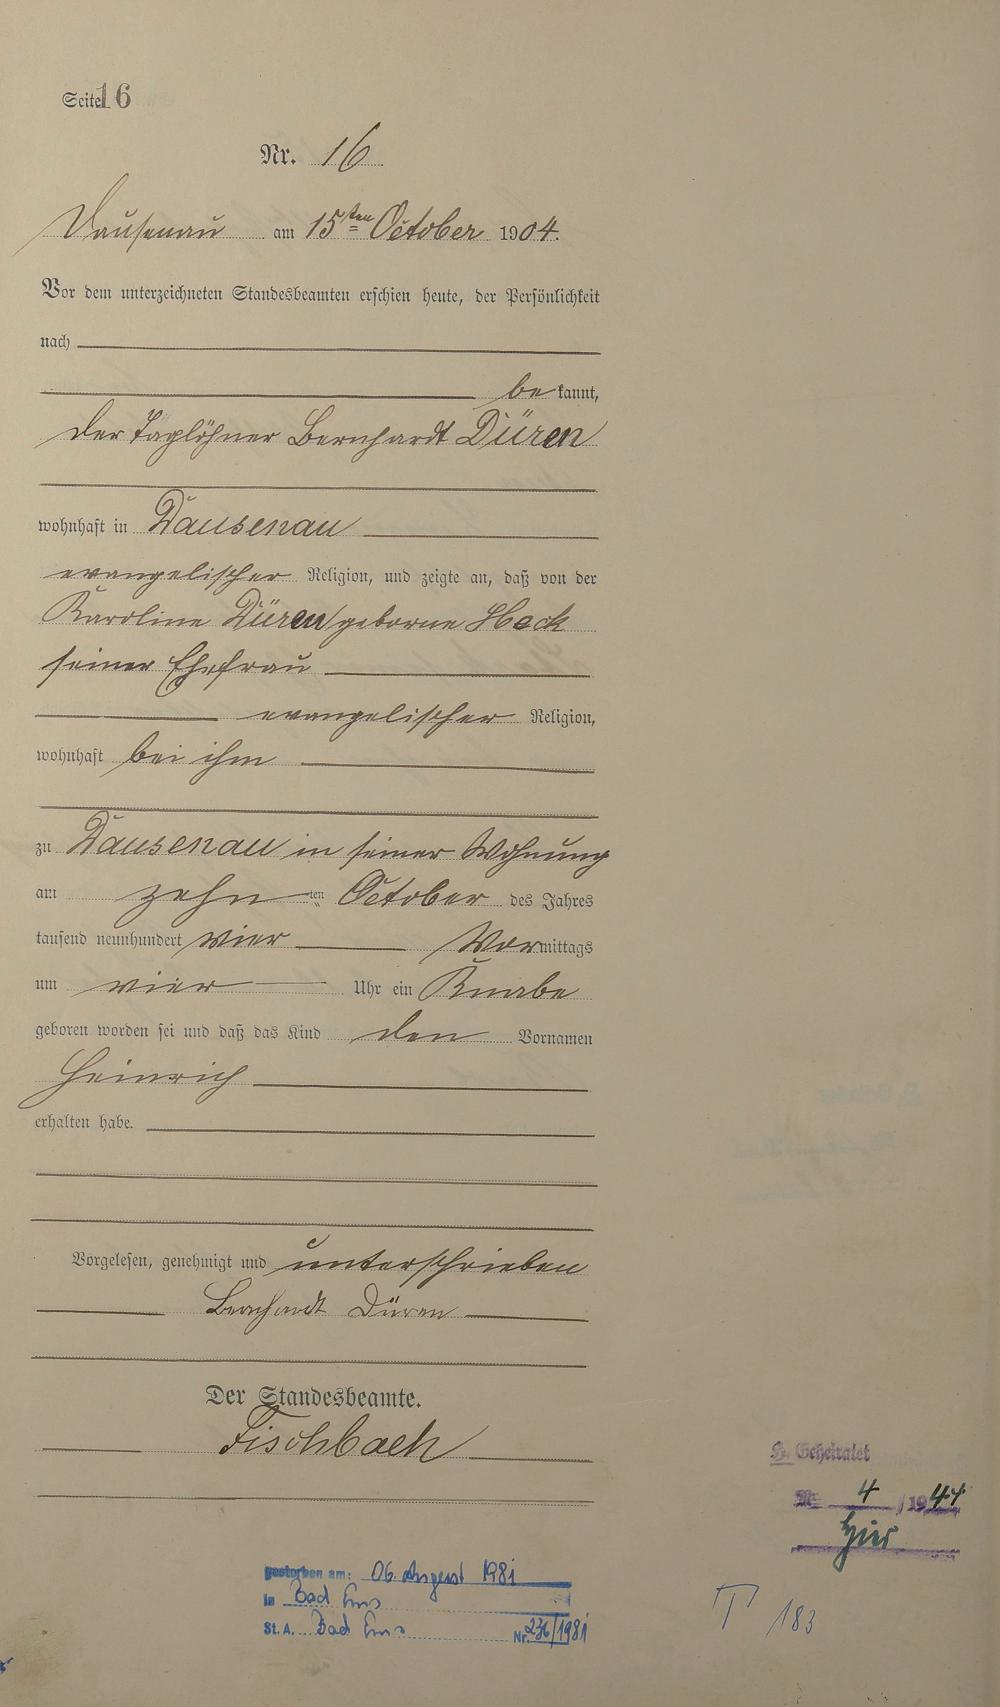 Seite 16
Nr. 16
Dausenau am 15ten October 1904.
Vor dem unterzeichneten Standesbeamten erschien heute, der Persönlichkeit
nach
be kannt,
der Taglöhner Bernhardt Düren
wohnhaft in Dausenau
evangelischer Religion, und zeigte an, daß von der
Karoline Düren geborne Heck
seiner Ehefrau
evangelischer Religion,
wohnhaft bei ihm
zu Dausenau in seiner Wohnung
am zehn ten October des Jahres
tausend neunhundert vier Vormittags
um vier Uhr ein Knabe
geboren worden sei und daß das Kind den Vornamen
Heinrich
erhalten habe.
Vorgelesen, genehmigt und unterschrieben
Bernhardt Düren
Der Standesbeamte.
Fischbach
Geheiratet
Nr. 4 / 1941
hier
gestorben am: 06. August 1981
in Bad Ems
St. A. Bad Ems Nr. 236/1981
T 183